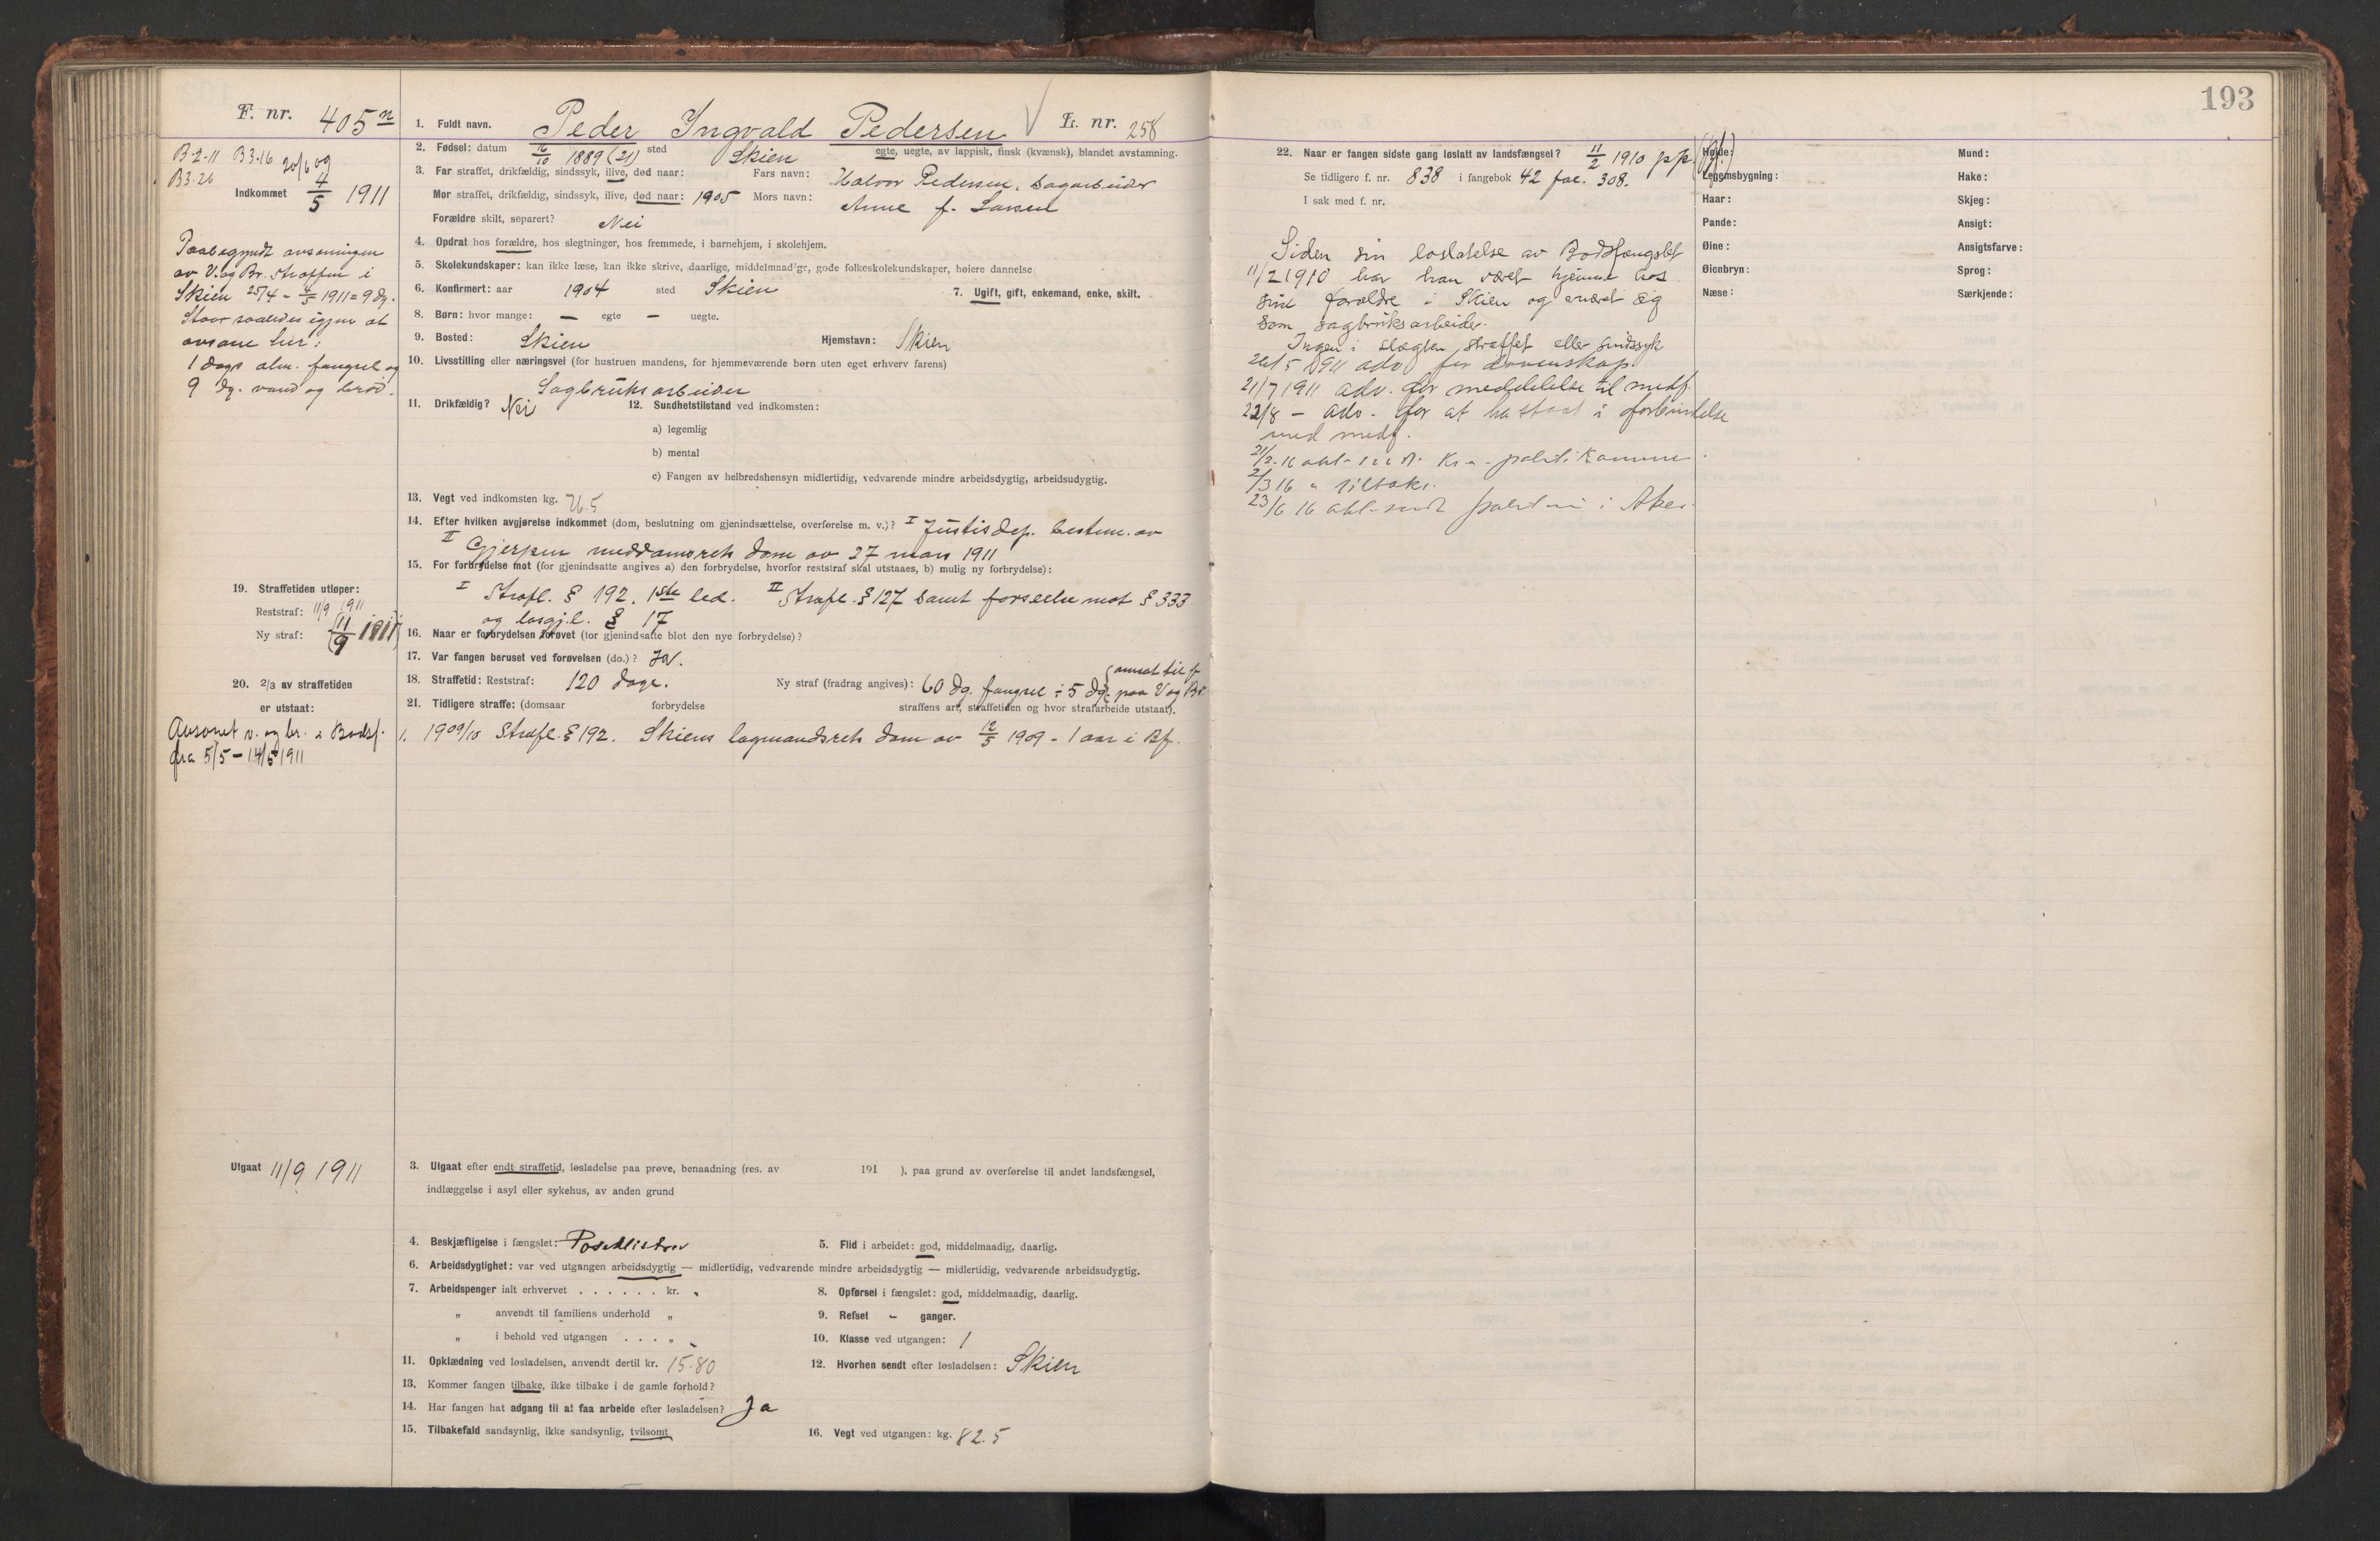 F. nr. 405 n
B-2-11 B3.16 20/6 09
B3.26
Indkommet 4/5 1911
Paabegyndt avsoningen
av V. og Br. straffen i
Skien 25/4 - 4/5 1911 = 9 dg.
Staar saaledes igjen at
avsone her:
1 dags alm. fængsel og
9 dg. vand og brød.
19. Straffetiden utløper:
Reststraf: 11/9 1911
Ny straf: (11/9 1911)
20. 2/3 av straffetiden
er utstaat:
Avsonet v. og br. i Bodsf.
fra 5/5 - 14/5 1911
Utgaat 11/9 1911
1. Fuldt navn. Peder Ingvald Pedersen L. nr. 258
2. Fødsel: datum 16/10 1889 (21) sted Skien egte, uegte, av lappisk, finsk (kvænsk), blandet avstamning.
3. Far straffet, drikfældig, sindssyk, ilive, død naar: Fars navn: Halvor Pedersen, sagarbeider
Mor straffet, drikfældig, sindssyk, ilive, død naar: 1905 Mors navn: Anne f. Larsen
Forældre skilt, separert? Nei
4. Opdrat hos forældre, hos slegtninger, hos fremmede, i barnehjem, i skolehjem.
5. Skolekundskaper: kan ikke læse, kan ikke skrive, daarlige, middelmaadige, gode folkeskolekundskaper, høiere dannelse
6. Konfirmert: aar 1904 sted Skien 7. Ugift, gift, enkemand, enke, skilt.
8. Børn: hvor mange: — egte — uegte.
9. Bosted: Skien Hjemstavn: Skien
10. Livsstilling eller næringsvei (for hustruen mandens, for hjemmeværende børn uten eget erhverv farens)
Sagbruksarbeider
11. Drikfældig? Nei 12. Sundhetstilstand ved indkomsten:
a) legemlig
b) mental
c) Fangen av helbredshensyn midlertidig, vedvarende mindre arbeidsdygtig, arbeidsudygtig.
13. Vegt ved indkomsten kg. 76.5
14. Efter hvilken avgjørelse indkommet (dom, beslutning om gjenindsættelse, overførelse m. v.)? I Justisdep. bestem. av
II Gjerpen meddomsrets dom av 27 mars 1911
15. For forbrydelse mot (for gjenindsatte angives a) den forbrydelse, hvorfor reststraf skal utstaaes, b) mulig ny forbrydelse):
I Strafl. § 192. 1ste led. II Strafl. § 127 samt forseelse mot § 333
og løsgj.l. § 17
16. Naar er forbrydelsen forøvet (for gjenindsatte blot den nye forbrydelse)?
17. Var fangen beruset ved forøvelsen (do.)? Ja.
18. Straffetid: Reststraf: 120 dage. Ny straf (fradrag angives): 60 dg. fængsel ÷ 5 dg. (omsat til f. paa V og Br.
21. Tidligere straffe: (domsaar forbrydelse straffens art, straffetiden og hvor strafarbeide utstaat).
1. 1909/10 Strafl. § 192. Skiens lagmandsrets dom av 12/5 1909 - 1 aar i Bf.
3. Utgaat efter endt straffetid, løsladelse paa prøve, benaadning (res. av 191 ), paa grund av overførelse til andet landsfængsel,
indlæggelse i asyl eller sykehus, av anden grund
4. Beskjæftigelse i fængslet: Poseklistrer 5. Flid i arbeidet: god, middelmaadig, daarlig.
6. Arbeidsdygtighet: var ved utgangen arbeidsdygtig — midlertidig, vedvarende mindre arbeidsdygtig — midlertidig, vedvarende arbeidsudygtig.
7. Arbeidspenger ialt erhvervet . . . . . . kr. 8. Opførsel i fængslet: god, middelmaadig, daarlig.
„ anvendt til familiens underhold „ 9. Refset - ganger.
„ i behold ved utgangen . . . . „ 10. Klasse ved utgangen: 1
11. Opklædning ved løsladelsen, anvendt dertil kr. 15.80 12. Hvorhen sendt efter løsladelsen: Skien
13. Kommer fangen tilbake, ikke tilbake i de gamle forhold?
14. Har fangen hat adgang til at faa arbeide efter løsladelsen? Ja
15. Tilbakefald sandsynlig, ikke sandsynlig, tvilsomt 16. Vegt ved utgangen: kg. 82.5
193
22. Naar er fangen sidste gang løslatt av landsfængsel? 11/2 1910 pp. (Bf.)
Se tidligere f. nr. 838 i fangebok 42 fol. 308.
I sak med f. nr.
Siden sin løslatelse av Bodsfængslet
11/2 1910 har han været hjemme hos
sine forældre i Skien og ernæret sig
som sagbruksarbeider.
Ingen i slægten straffet eller sindssyk
26/5 1911 adv. for dovenskap.
21/7 1911 adv. for meddelelse til medf.
22/8 - adv. for at ha staat i forbindelse
med medf.
21/2.16 akt. sendt Kr.a. politikammer.
2/3 16 " tilbake.
23/6 16 akt. sendt politiet i Aker.
Høide:
Legemsbygning:
Haar:
Pande:
Øine:
Øienbryn:
Næse:
Mund:
Hake:
Skjeg:
Ansigt:
Ansigtsfarve:
Sprog:
Særkjende: